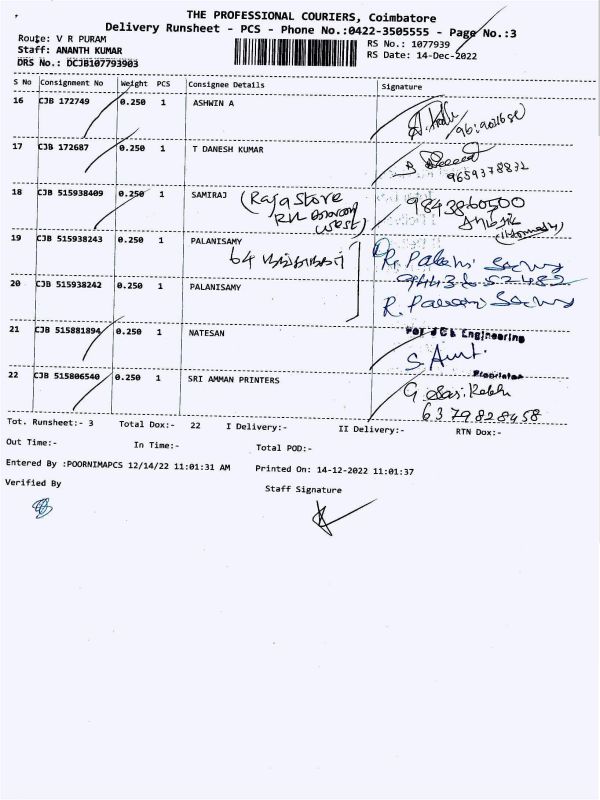 THE PROFESSIONAL COURIERS, Coimbatore
Delivery Runsheet - PCS - Phone No.:0422-3505555 - Page No.:3
Route: V R PURAM
RS No.: 1077939
Staff: ANANTH KUMAR
RS Date: 14-Dec-2022
DRS No.: DCJB107793903
S No Consignment No Weight PCS Consignee Details Signature
16 CJB 172749 0.250 1 ASHWIN A
17 CJB 172687 0.250 1 T DANESH KUMAR
9659378832
18 CJB 515938409 0.250 1 SAMIRAJ (Raja Store
9843860500
West)
19 CJB 515938243 0.250 1 PALANISAMY
64
R. Palani Samy
9443652482
20 CJB 515938242 0.250 1 PALANISAMY
R. Palani Samy
21 CJB 515881894 0.250 1 NATESAN
For J C L Engineering
S. Amt.
Proprietor
22 CJB 515806540 0.250 1 SRI AMMAN PRINTERS
G. Sasi Rekha
6379828458
Tot. Runsheet:- 3 Total Dox:- 22 I Delivery:- II Delivery:- RTN Dox:-
Out Time:- In Time:- Total POD:-
Entered By :POORNIMAPCS 12/14/22 11:01:31 AM Printed On: 14-12-2022 11:01:37
Verified By
Staff Signature